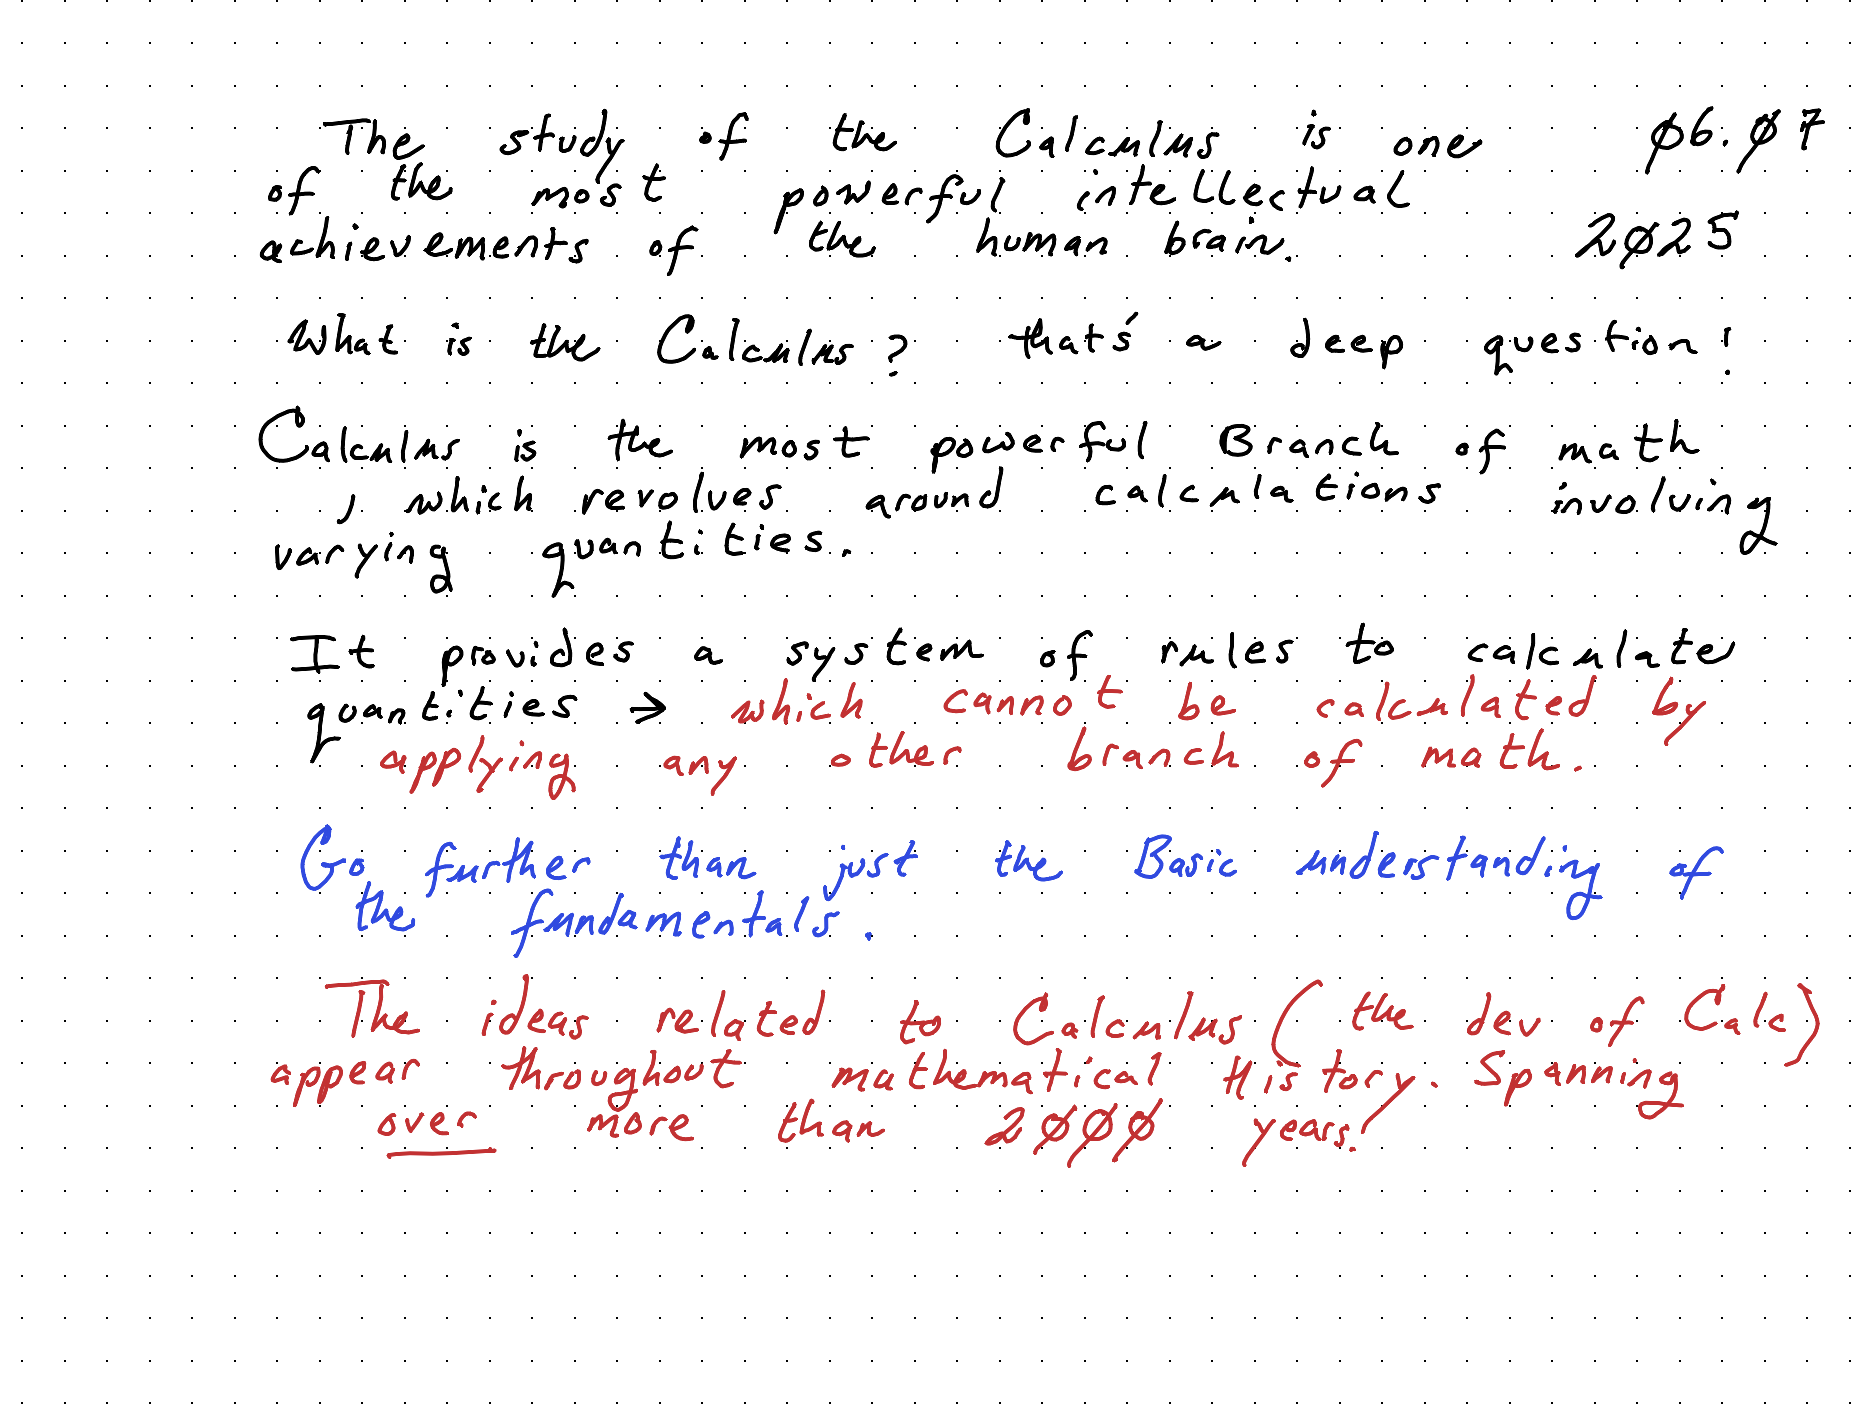 The study of the Calculus is one 06.07
of the most powerful intellectual
achievements of the human brain. 2025
What is the Calculus? that's a deep question!
Calculus is the most powerful Branch of math
, which revolves around calculations involving
varying quantities.
It provides a system of rules to calculate
quantities → which cannot be calculated by
applying any other branch of math.
Go further than just the Basic understanding of
the fundamentals.
The ideas related to Calculus (the dev of Calc)
appear throughout mathematical History. Spanning
over more than 2000 years.